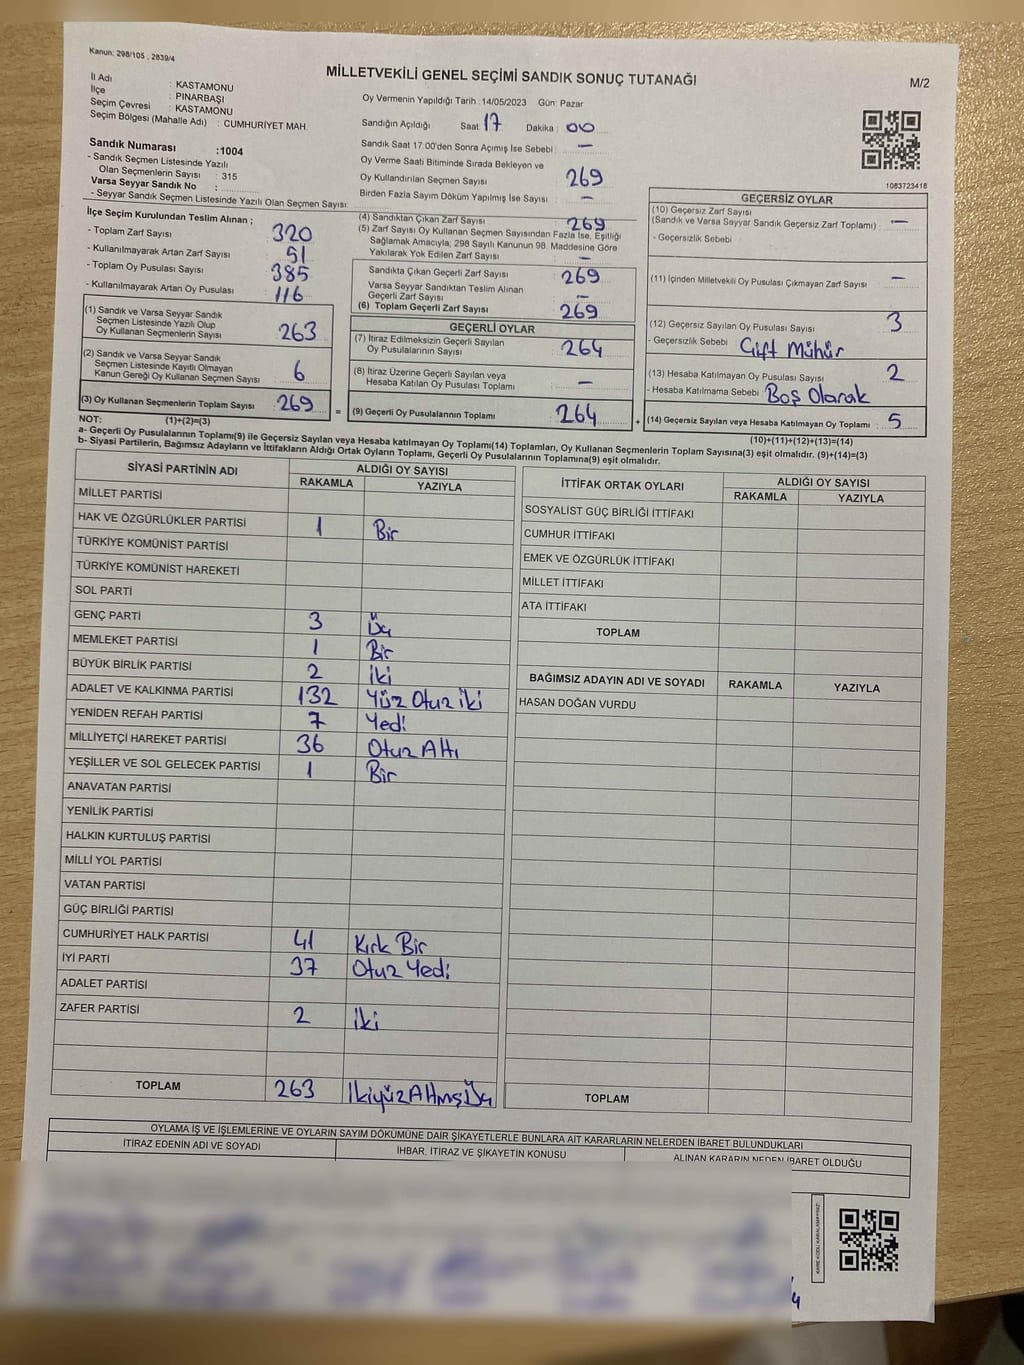 Kanun: 298/105 , 2839/4
MİLLETVEKİLİ GENEL SEÇİMİ SANDIK SONUÇ TUTANAĞI
M/2
İl Adı : KASTAMONU
İlçe : PINARBAŞI
Seçim Çevresi : KASTAMONU
Seçim Bölgesi (Mahalle Adı) : CUMHURİYET MAH.
Sandık Numarası :1004
- Sandık Seçmen Listesinde Yazılı
Olan Seçmenlerin Sayısı : 315
Varsa Seyyar Sandık No :
- Seyyar Sandık Seçmen Listesinde Yazılı Olan Seçmen Sayısı:
Oy Vermenin Yapıldığı Tarih : 14/05/2023 Gün: Pazar
Sandığın Açıldığı Saat: 17 Dakika : 00
Sandık Saat 17.00'den Sonra Açımış İse Sebebi : —
Oy Verme Saati Bitiminde Sırada Bekleyen ve
Oy Kullandırılan Seçmen Sayısı 269
Birden Fazla Sayım Döküm Yapılmış İse Sayısı —
1083723418
İlçe Seçim Kurulundan Teslim Alınan ;
- Toplam Zarf Sayısı 320
- Kullanılmayarak Artan Zarf Sayısı 51
- Toplam Oy Pusulası Sayısı 385
- Kullanılmayarak Artan Oy Pusulası 116
(1) Sandık ve Varsa Seyyar Sandık
Seçmen Listesinde Yazılı Olup
Oy Kullanan Seçmenlerin Sayısı 263
(2) Sandık ve Varsa Seyyar Sandık
Seçmen Listesinde Kayıtlı Olmayan
Kanun Gereği Oy Kullanan Seçmen Sayısı 6
(3) Oy Kullanan Seçmenlerin Toplam Sayısı 269 =
(4) Sandıktan Çıkan Zarf Sayısı 269
(5) Zarf Sayısı Oy Kullanan Seçmen Sayısından Fazla İse, Eşitliği
Sağlamak Amacıyla; 298 Sayılı Kanunun 98. Maddesine Göre
Yakılarak Yok Edilen Zarf Sayısı —
Sandıkta Çıkan Geçerli Zarf Sayısı 269
Varsa Seyyar Sandıktan Teslim Alınan
Geçerli Zarf Sayısı —
(6) Toplam Geçerli Zarf Sayısı 269
GEÇERLİ OYLAR
(7) İtiraz Edilmeksizin Geçerli Sayılan
Oy Pusulalarının Sayısı 264
(8) İtiraz Üzerine Geçerli Sayılan veya
Hesaba Katılan Oy Pusulası Toplamı —
(9) Geçerli Oy Pusulalarının Toplamı 264 +
GEÇERSİZ OYLAR
(10) Geçersiz Zarf Sayısı
(Sandık ve Varsa Seyyar Sandık Geçersiz Zarf Toplamı) : —
- Geçersizlik Sebebi
(11) İçinden Milletvekili Oy Pusulası Çıkmayan Zarf Sayısı —
(12) Geçersiz Sayılan Oy Pusulası Sayısı 3
- Geçersizlik Sebebi Çift Mühür
(13) Hesaba Katılmayan Oy Pusulası Sayısı 2
- Hesaba Katılmama Sebebi Boş Olarak
(14) Geçersiz Sayılan veya Hesaba Katılmayan Oy Pusulası Toplamı 5
NOT: (1)+(2)=(3)
(10)+(11)+(12)+(13)=(14)
a- Geçerli Oy Pusulalarının Toplamı(9) ile Geçersiz Sayılan veya Hesaba katılmayan Oy Toplamı(14) Toplamları, Oy Kullanan Seçmenlerin Toplam Sayısına(3) eşit olmalıdır. (9)+(14)=(3)
b- Siyasi Partilerin, Bağımsız Adayların ve İttifakların Aldığı Ortak Oyların Toplamı, Geçerli Oy Pusulalarının Toplamına(9) eşit olmalıdır.
SİYASİ PARTİNİN ADI ALDIĞI OY SAYISI
RAKAMLA YAZIYLA
MİLLET PARTİSİ
HAK VE ÖZGÜRLÜKLER PARTİSİ 1 Bir
TÜRKİYE KOMÜNİST PARTİSİ
TÜRKİYE KOMÜNİST HAREKETİ
SOL PARTİ
GENÇ PARTİ 3 Üç
MEMLEKET PARTİSİ 1 Bir
BÜYÜK BİRLİK PARTİSİ 2 iki
ADALET VE KALKINMA PARTİSİ 132 Yüz Otuz iki
YENİDEN REFAH PARTİSİ 7 Yedi
MİLLİYETÇİ HAREKET PARTİSİ 36 Otuz Altı
YEŞİLLER VE SOL GELECEK PARTİSİ 1 Bir
ANAVATAN PARTİSİ
YENİLİK PARTİSİ
HALKIN KURTULUŞ PARTİSİ
MİLLİ YOL PARTİSİ
VATAN PARTİSİ
GÜÇ BİRLİĞİ PARTİSİ
CUMHURİYET HALK PARTİSİ 41 Kırk Bir
İYİ PARTİ 37 Otuz Yedi
ADALET PARTİSİ
ZAFER PARTİSİ 2 iki
TOPLAM 263 İkiyüzAltmışÜç
İTTİFAK ORTAK OYLARI ALDIĞI OY SAYISI
RAKAMLA YAZIYLA
SOSYALİST GÜÇ BİRLİĞİ İTTİFAKI
CUMHUR İTTİFAKI
EMEK VE ÖZGÜRLÜK İTTİFAKI
MİLLET İTTİFAKI
ATA İTTİFAKI
TOPLAM
BAĞIMSIZ ADAYIN ADI VE SOYADI RAKAMLA YAZIYLA
HASAN DOĞAN VURDU
TOPLAM
OYLAMA İŞ VE İŞLEMLERİNE VE OYLARIN SAYIM DÖKÜMÜNE DAİR ŞİKAYETLERLE BUNLARA AİT KARARLARIN NELERDEN İBARET BULUNDUKLARI
İTİRAZ EDENİN ADI VE SOYADI İHBAR, İTİRAZ VE ŞİKAYETİN KONUSU ALINAN KARARIN NEDEN İBARET OLDUĞU